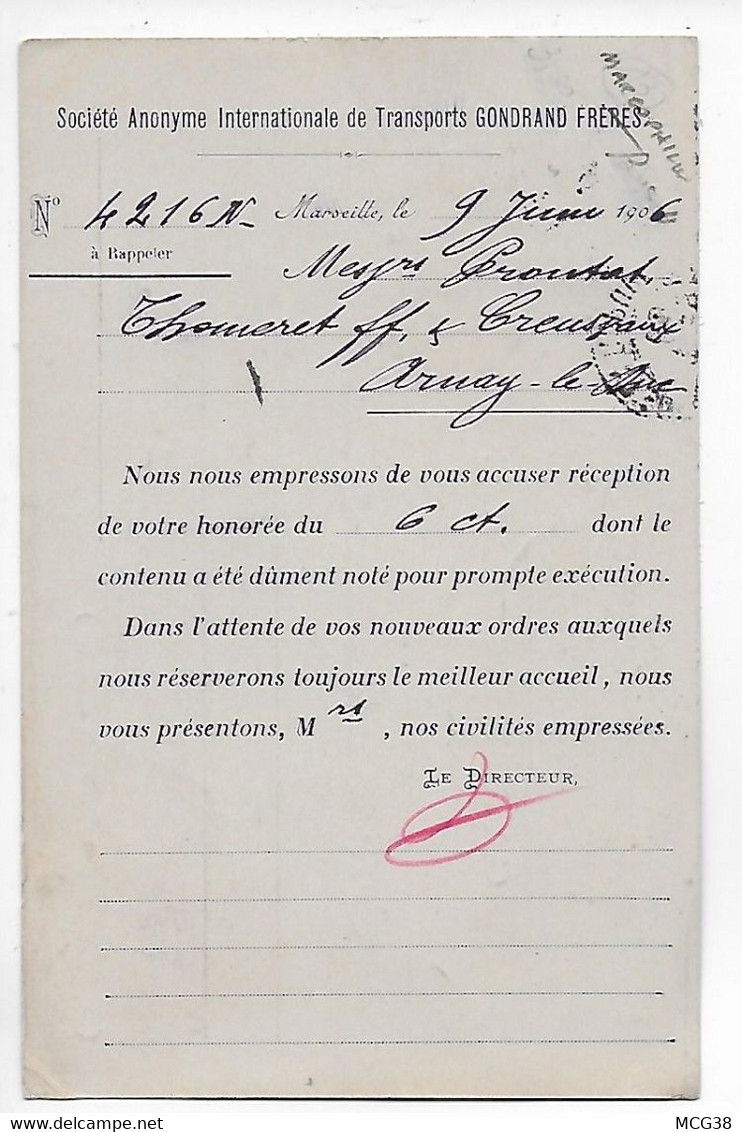 MARCOPHILIE
Société Anonyme Internationale de Transports GONDRAND FRÈRES.
N° 4216 N Marseille, le 9 Juin 1906
à Rappeler
Messrs Proutat,
Thomeret ff, & Creusvaux
Arnay-le-Duc
Nous nous empressons de vous accuser réception
de votre honorée du 6 ct. dont le
contenu a été dûment noté pour prompte exécution.
Dans l'attente de vos nouveaux ordres auxquels
nous réserverons toujours le meilleur accueil, nous
vous présentons, Mrs, nos civilités empressées.
LE DIRECTEUR,
delcampe.net
MCG38